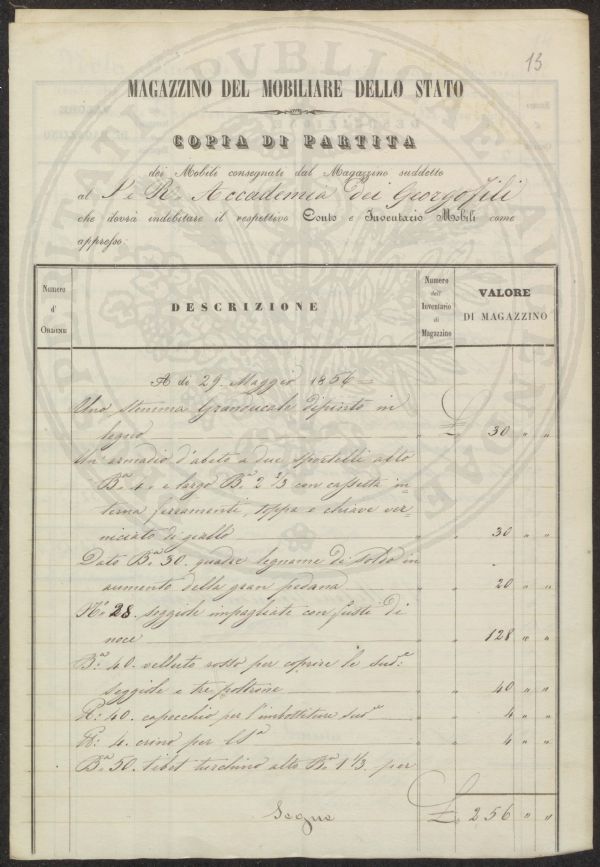 13
MAGAZZINO DEL MOBILIARE DELLO STATO
COPIA DI PARTITA
dei Mobili consegnati dal Magazzino suddetto
al I. e R. Accademia dei Georgofili
che dovrà indebitare il respettivo Conto e Inventario Mobili come
appresso:
Numero d' ORDINE
DESCRIZIONE
Numero dell' Inventario di Magazzino
VALORE DI MAGAZZINO
A dì 29. Maggio 1856=
Uno stemma Granducale dipinto in
legno £ 30 " "
Un armadio d'abete a due sportelli alto
Bª 4. e largo Bª 2 1/3 con cassetta in=
terna ferramenti, toppa e chiave ver=
niciato di giallo 30 " "
Dato Bª 30. quadre legname di in
aumento della gran pedana 20 " "
Nº 28. seggiole impagliate con fusti di
noce 128 " "
Bª 40. velluto rosso per coprire le sud:ᵉ
seggiole e tre poltrone 40 " "
£: 40. capecchio per l'imbottiture sudᵉ 4 " "
£: 4. crino per 4 " "
Bª 50. tibet turchino alto Bª 1 1/3. per
Segue £ 256 " "
PVBLICAE